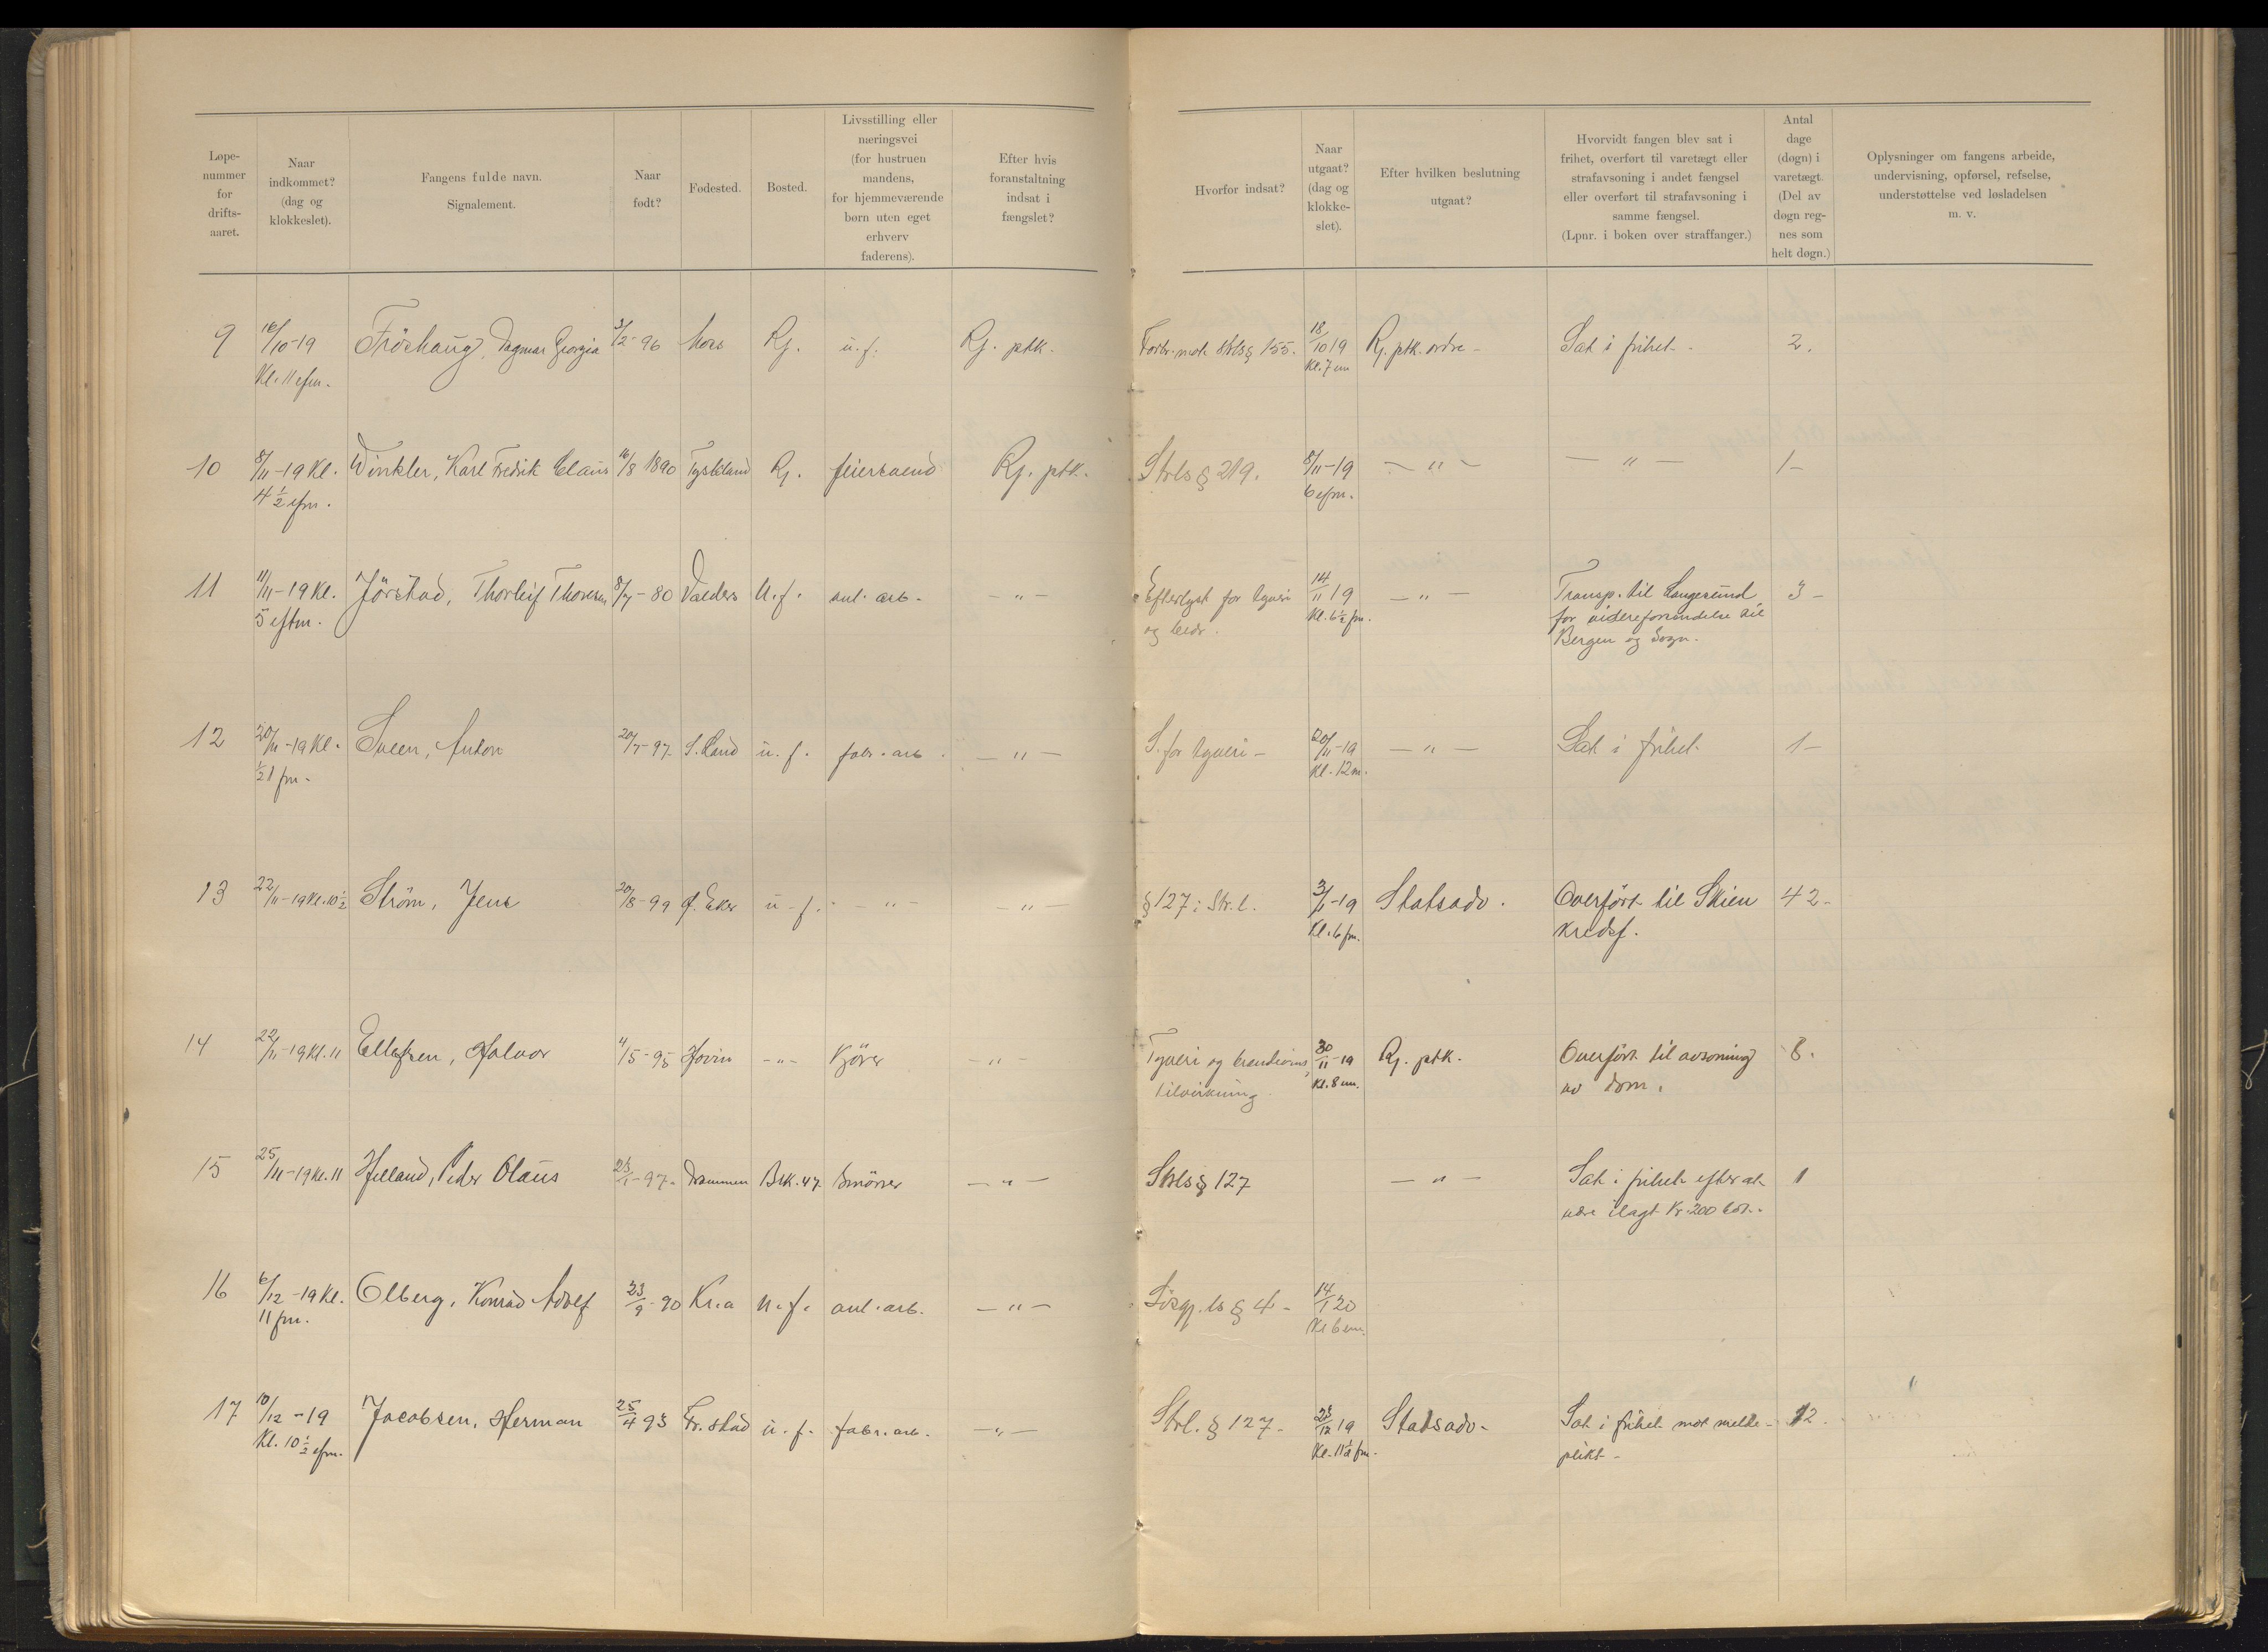 Løpe-
nummer
for
drifts-
aaret.
Naar
indkommet?
(dag og
klokkeslet).
Fangens fulde navn.
Signalement.
Naar
født?
Fødested.
Bosted.
Livsstilling eller
næringsvei
(for hustruen
mandens,
for hjemmeværende
børn uten eget
erhverv
faderens).
Efter hvis
foranstaltning
indsat i
fængslet?
Hvorfor indsat?
Naar
utgaat?
(dag og
klokke-
slet).
Efter hvilken beslutning
utgaat?
Hvorvidt fangen blev sat i
frihet, overført til varetægt eller
strafavsoning i andet fængsel
eller overført til strafavsoning i
samme fængsel.
(Lpnr. i boken over straffanger.)
Antal
dage
(døgn) i
varetægt.
(Del av
døgn reg-
nes som
helt døgn.)
Oplysninger om fangens arbeide,
undervisning, opførsel, refselse,
understøttelse ved løsladelsen
m. v.
9 16/10-19 Fröshaug, Dagmar Georgia 3/2-96 Moss Rj. u.f. Rj. ptk. Forbr. mot strls § 155. 18/10 19 Rj. ptk. ordre - Sat i frihet - 2.
Kl. 11 efm. Kl. 7 em
10 8/11-19 Kl. Winkler, Karl Fredrik Claus 16/8 1890 Tyskland Rj. feiersvend Rj. ptk. Strls § 219. 8/11-19 - " - - " - 1-
4 1/2 efm. 6 efm.
11 11/11-19 Kl. Jörstad, Thorleif Thoresen 8/7-80 Valders U.f. anl. arb. - " - Efterlyst for tyveri 14/11 19 - " - Transp. til Langesund 3-
5 eftm. og bedr. Kl. 6 1/2 fm. for videreforsendelse til
Bergen og Sogn.
12 20/11-19 Kl. Sveen, Anton 20/7-97 S. Land u.f. fabr. arb. - " - S. for tyveri - 20/11-19 - " - Sat i frihet 1-
1/2 1 fm. Kl. 12 m.
13 22/11-19 Kl. 10 1/2 Ström, Jens 20/8-99 Ø. Eker u-f. - " - - " - § 127 i Str. l. 3/1-19 Statsadv. Overført til Skien 42-
Kl. 6 fm. kredsf.
14 22/11-19 Kl. 11 Ellefsen, Halvor 4/5-95 Hovin - " - Kjörer - " - Tyveri og brændevins 30/11-19 Rj. ptk. Overført til avsoning 8.
tilvirkning Kl. 8 em. av dom.
15 25/11-19 Kl. 11 Helland, Peder Olaus 23/1-97. Drammen Bsk. 47 Smörer - " - Strls § 127 - " - Sat i frihet efter at 1
være ilagt Kr. 200 bot.
16 6/12-19 Kl. Olberg, Konrad Adolf 23/9-90 Kr.a u.f. anl. arb. - " - Lösgj. ls § 4 - 14/1 20
11 fm. Kl 6 em.
17 10/12-19 Jacobsen, Herman 25/4 93 Fr.stad u.f. fabr. arb. - " - Strl. § 127 - 23/12 19 Statsadv - Sat i frihet mot melde- 12.
Kl. 10 1/2 efm. Kl. 11 1/2 fm. plikt -